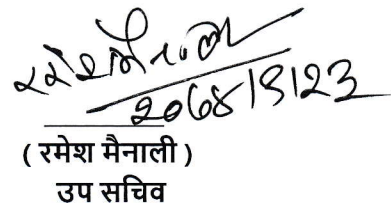 रमेश मैनाली
2068/9/23
( रमेश मैनाली )
उप सचिव